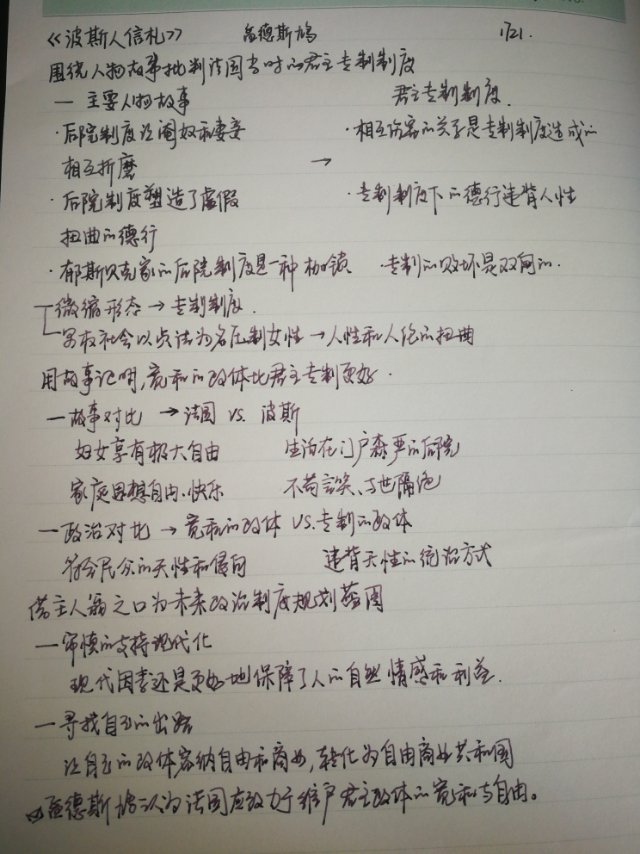 《波斯人信札》 孟德斯鸠 1/21.
围绕人物故事批判法国当时的君主专制制度
一 主要人物故事 君主专制制度.
·后院制度让阉奴和妻妾 ·相互伤害的关系是专制制度造成的
相互折磨 →
·后院制度塑造了虚假 ·专制制度下的德行违背人性
扭曲的德行
·郁斯贝克家的后院制度是一种枷锁 ·专制的败坏是双向的.
微缩形态→专制制度.
男权社会以贞洁为名压制女性→人性和人伦的扭曲
用故事证明,宽和的政体比君主专制更好.
一故事对比 →法国 vs. 波斯
妇女享有极大自由 生活在门户森严的后院
家庭思想自由、快乐 不苟言笑、与世隔绝
一政治对比→宽和的政体 VS.专制的政体
符合民众的天性和倾向 违背天性的统治方式
借主人翁之口为未来政治制度规划蓝图
一审慎的支持现代化
现代因素还是更好地保障了人的自然情感和利益.
一寻找自己的出路
让自己的政体容纳自由和商业,转化为自由商业共和国
孟德斯鸠认为法国应致力于维护君主政体的宽和与自由。